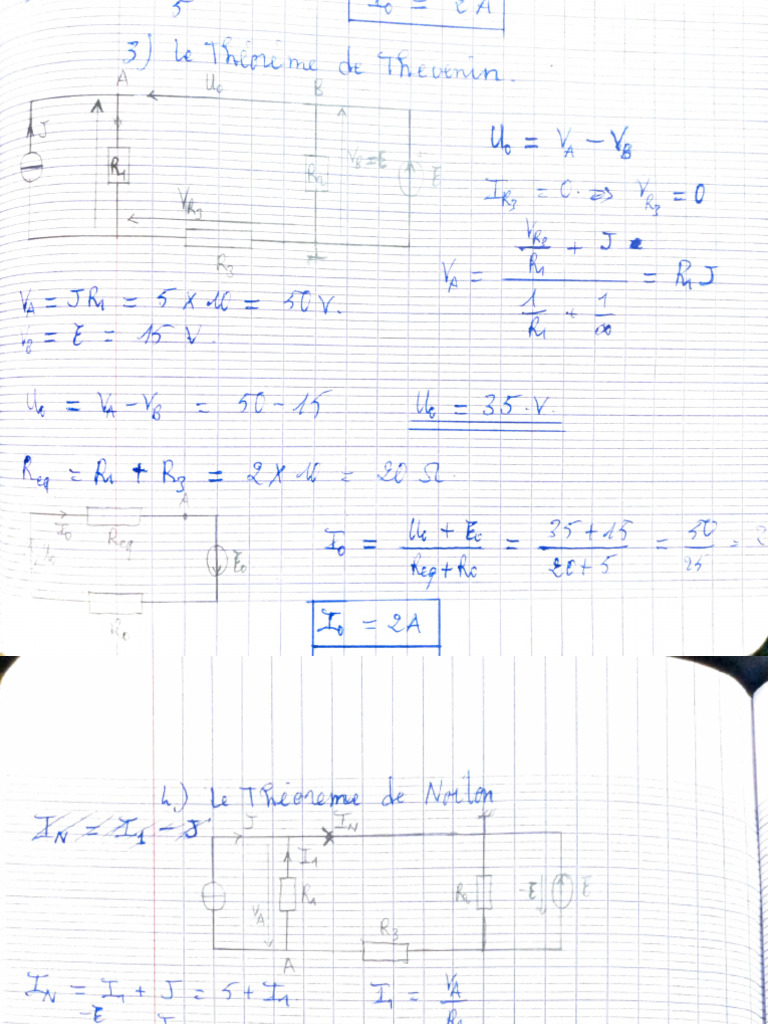 5
I₀ = 2A
3) Le Théorème de Thevenin.
A U₀ B
J R₁ R₂ V_B = E E
V_R₃
R₃
U₀ = V_A − V_B
I_R₃ = 0 ⇒ V_R₃ = 0
V_A = (V_R₃/R₁ + J) / (1/R₁ + 1/∞) = R₁J
V_A = JR₁ = 5 × 10 = 50 V.
V_B = E = 15 V
U₀ = V_A − V_B = 50 − 15 U₀ = 35.V.
Req = R₁ + R₃ = 2 × 10 = 20 Ω.
I₀ Req A
U₀ E₀
R₀
I₀ = (U₀ + E₀)/(Req + R₀) = (35 + 15)/(20 + 5) = 50/25 = 2
I₀ = 2A
4.) Le Théoreme de Norton
I_N = I₁ − J
J I_N
I₁
V_A R₁ R₂ -E E
R₃
A
I_N = I₁ + J = 5 + I₁ I₁ = V_A/R₁
-E